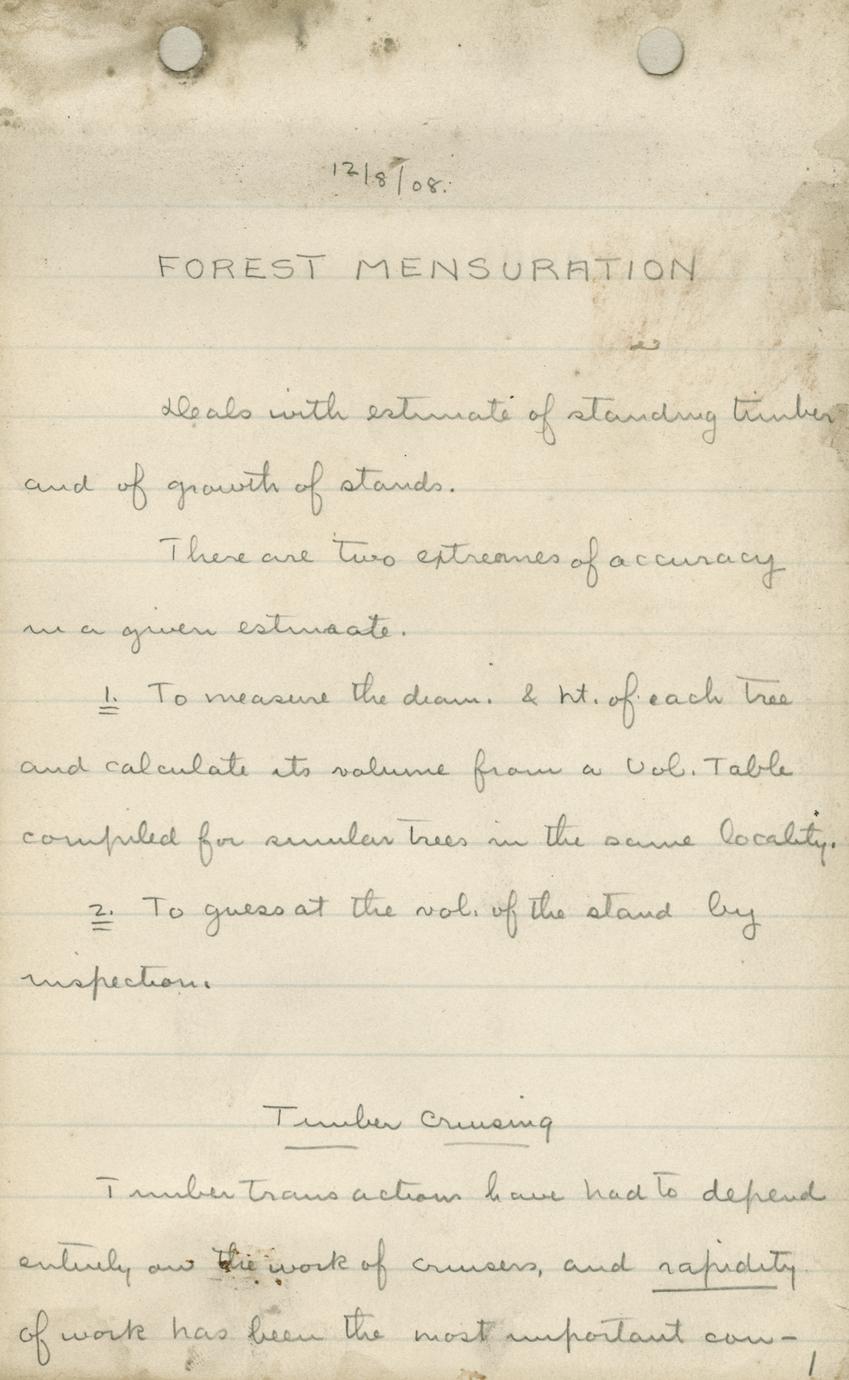 12/8/08.
FOREST MENSURATION
Deals with estimate of standing timber
and of growth of stands.
There are two extremes of accuracy
in a given estimate.
1. To measure the diam. & ht. of each tree
and calculate its volume from a Vol. Table
compiled for similar trees in the same locality.
2. To guess at the vol. of the stand by
inspection.
Timber Cruising
Timber transactions have had to depend
entirely on the work of cruisers, and rapidity
of work has been the most important con-
1